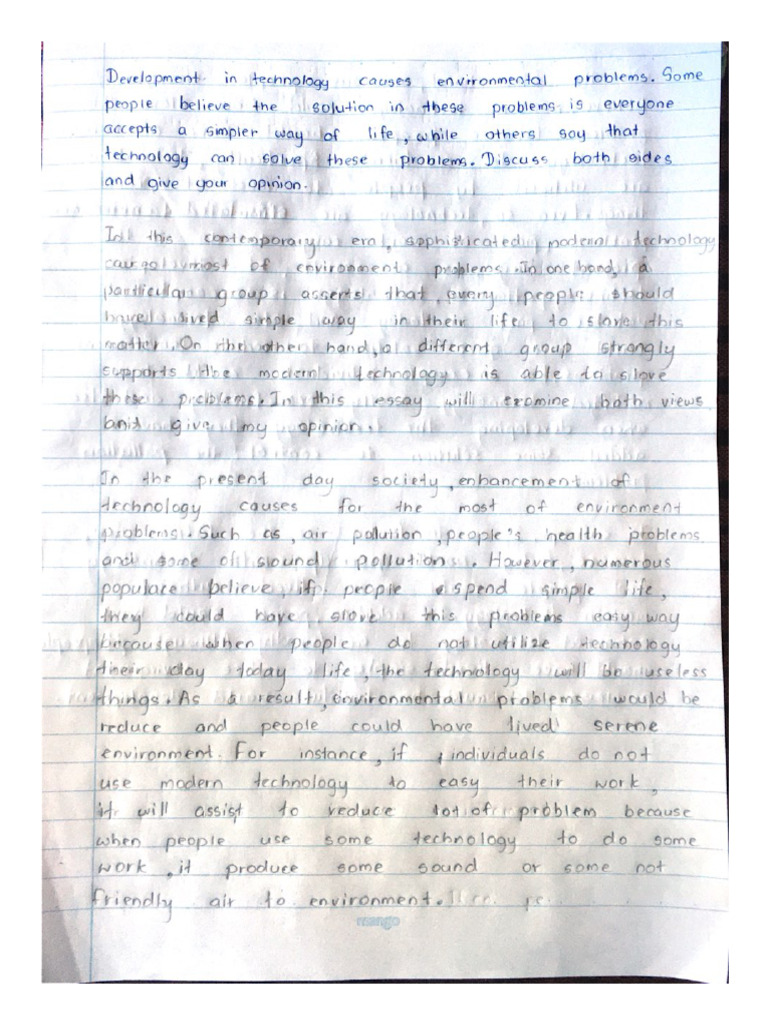 Development in technology causes environmental problems. Some
people believe the solution in these problems is everyone
accepts a simpler way of life, while others say that
technology can solve these problems. Discuss both sides
and give your opinion.
In this contemporary era, sophisticated modern technology
most of environment problems. In one hand, a
particular group asserts that every people should
lived simple way in their life to slove this
matter. On the other hand, a different group strongly
supports the modern technology is able to slove
these problems. In this essay will examine both views
and give my opinion.
In the present day society, enhancement of
technology causes for the most of environment
problems. Such as, air pollution, people's health problems
and some of sound pollution. However, numerous
populace believe if people spend simple life,
they could have slove this problems easy way
because when people do not utilize technology
their day today life, the technology will be useless
things. As a result, environmental problems would be
reduce and people could have lived serene
environment. For instance, if individuals do not
use modern technology to easy their work,
it will assist to reduce lot of problem because
when people use some technology to do some
work, it produce some sound or some not
friendly air to environment.
mango